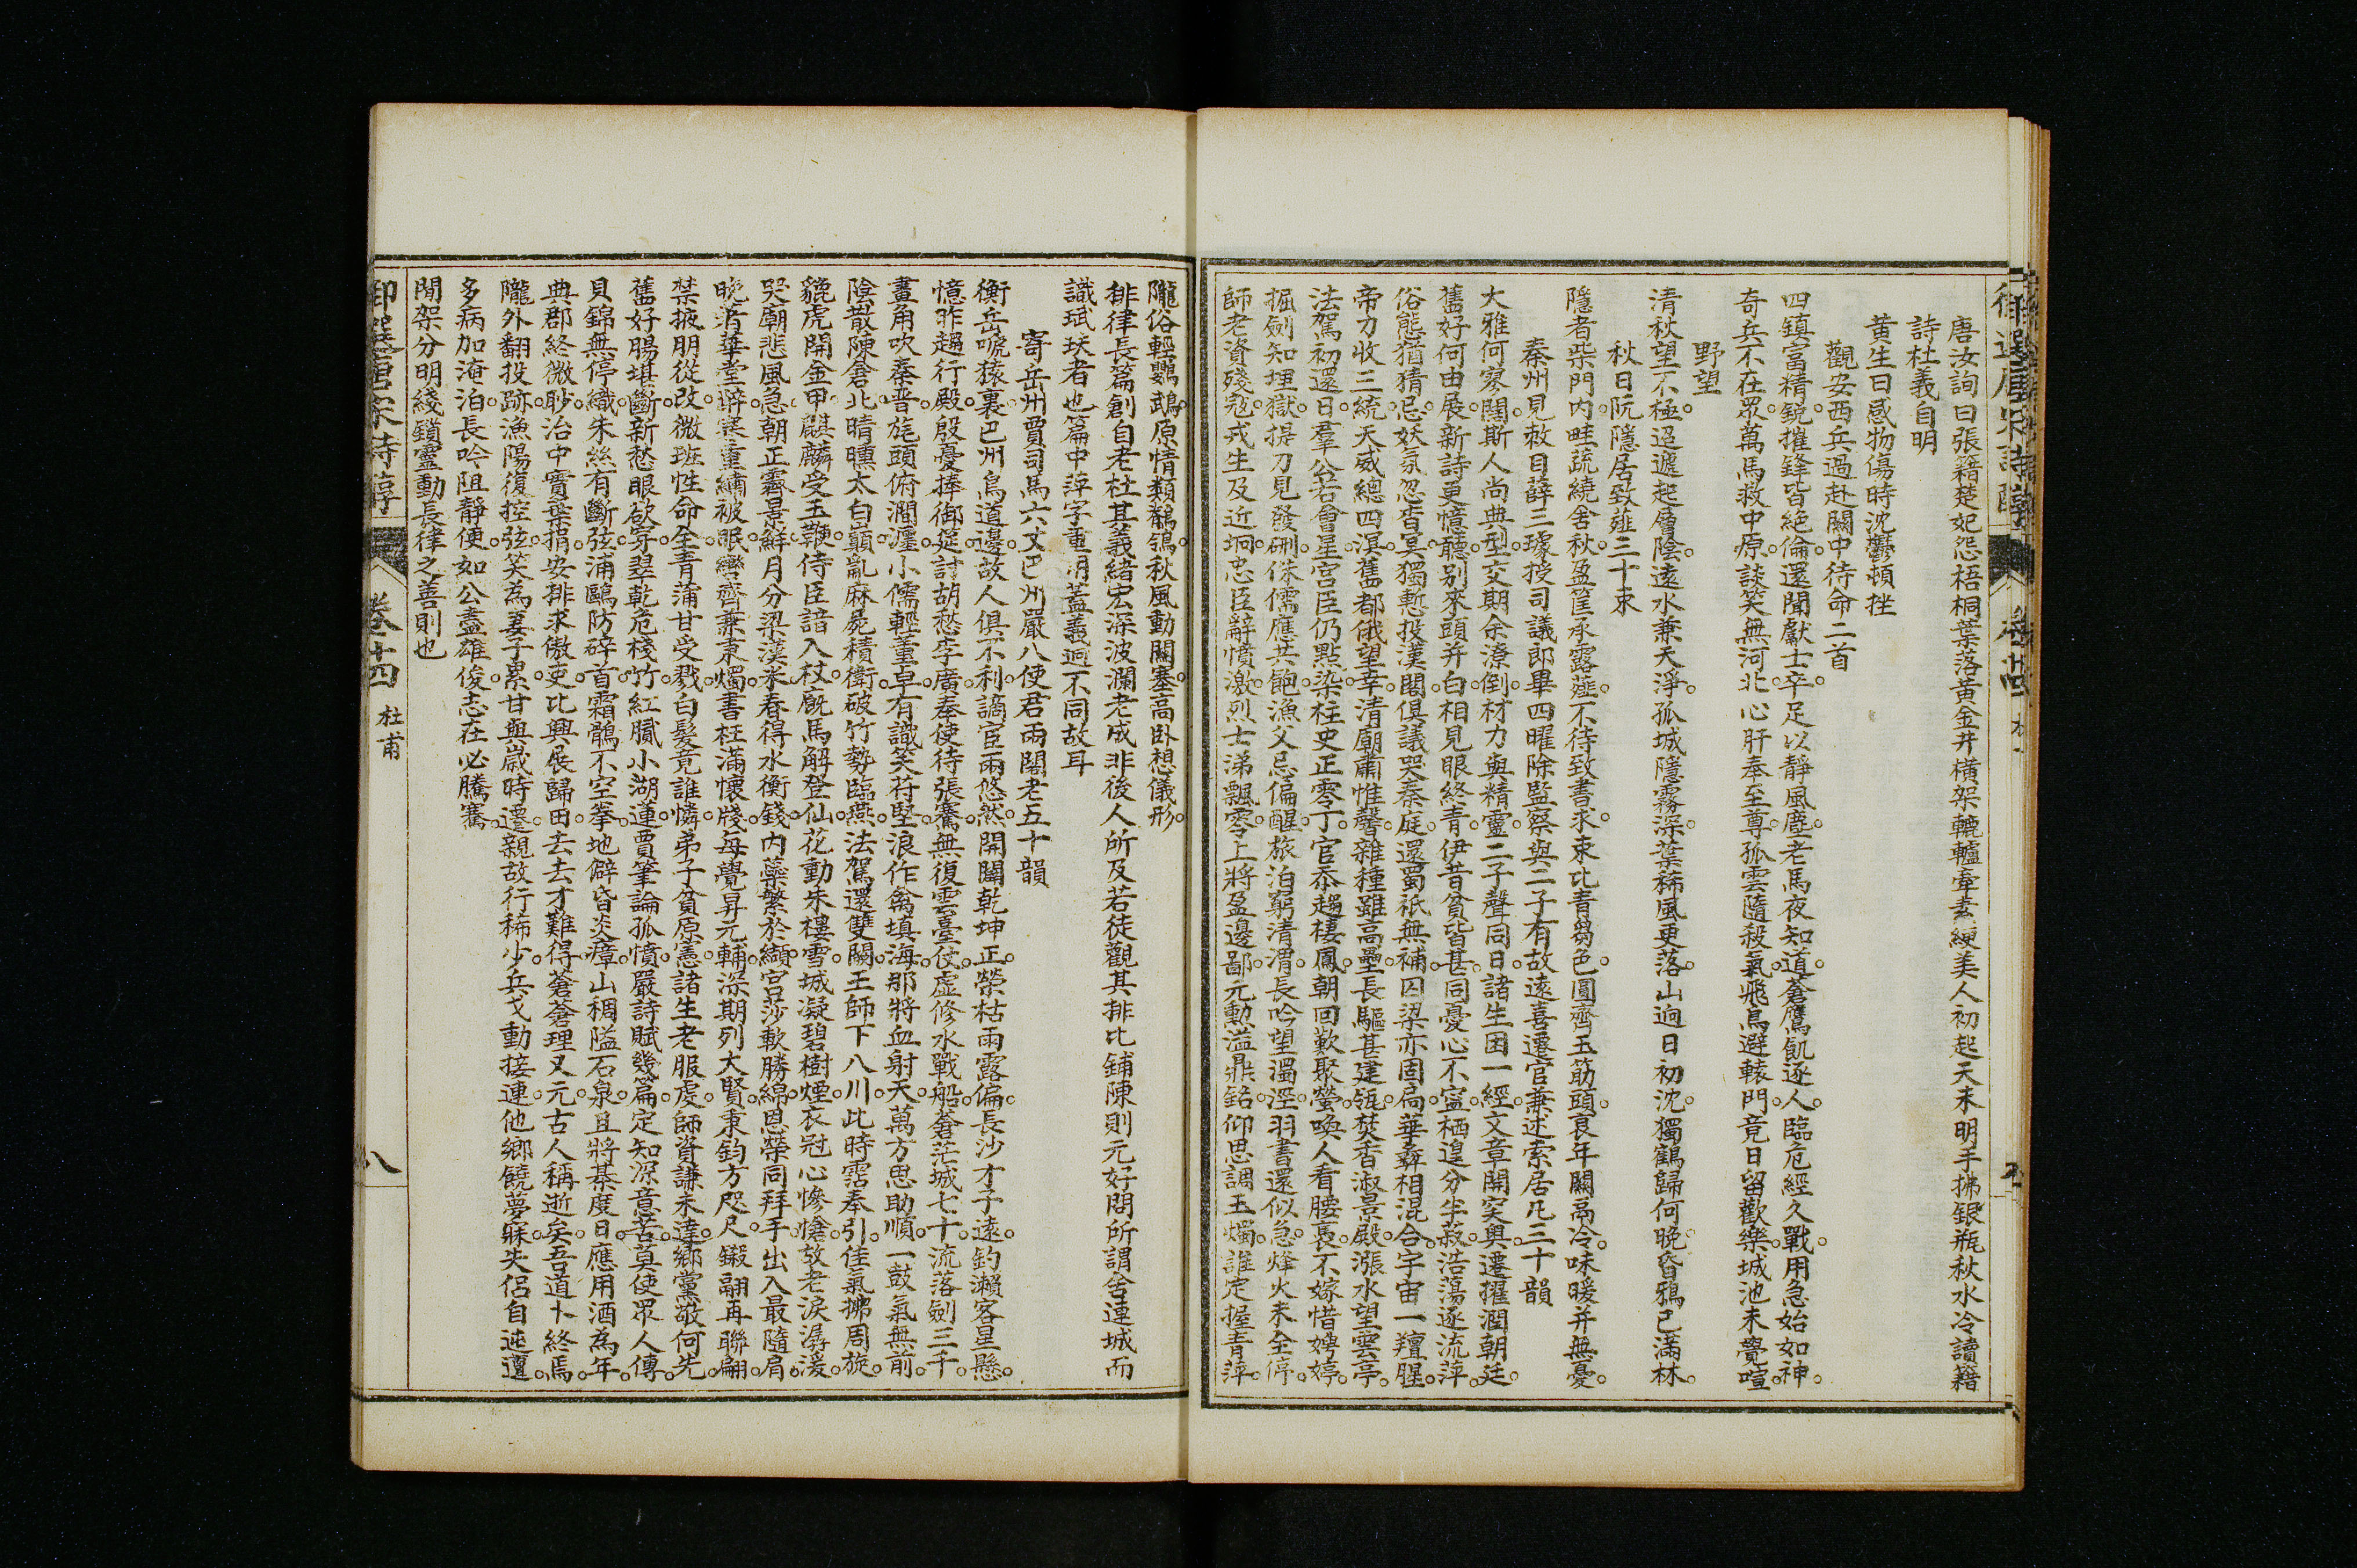 唐汝詢曰張籍楚妃怨梧桐葉落黃金井橫架轆轤牽素綆美人初起天未明手拂銀瓶秋水冷讀籍
詩杜義自明
黃生曰感物傷時沈鬱頓挫
觀安西兵過赴關中待命二首
四鎮富精銳摧鋒皆絕倫還聞獻士卒足以靜風塵老馬夜知道蒼鷹飢逐人臨危經久戰用急始如神
奇兵不在眾萬馬救中原談笑無河北心肝奉至尊孤雲隨殺氣飛鳥避轅門竟日留歡樂城池未覺喧
野望
清秋望不極迢遞起層陰遠水兼天淨孤城隱霧深葉稀風更落山迥日初沈獨鶴歸何晚昏鴉已滿林
秋日阮隱居致薤三十束
隱者柴門內畦蔬繞舍秋盈筐承露薤不待致書求束比青芻色圓齊玉筯頭衰年關鬲冷味暖并無憂
秦州見敕目薛三璩授司議郎畢四曜除監察與二子有故遠喜遷官兼述索居凡三十韻
大雅何寥闊斯人尚典型交期余潦倒材力與精靈二子聲同日諸生困一經文章開突奧遷擢潤朝廷
舊好何由展新詩更憶聽別來頭并白相見眼終青伊昔貧皆甚同憂心不寍栖遑分半菽浩蕩逐流萍
俗態猶猜忌妖氛忽杳冥獨慙投漢閣俱議哭秦庭還蜀祇無補囚梁亦固扃華彝相混合宇宙一羶腥
帝力收三統天威總四溟舊都俄望幸清廟肅惟馨雜種雖高壘長驅甚建瓴焚香淑景殿漲水望雲亭
法駕初還日羣公若會星宮臣仍點染柱史正零丁官忝趨棲鳳朝回歎聚螢喚人看腰裹不嫁惜娉婷
掘劍知埋獄提刀見發硎侏儒應共飽漁父忌偏醒旅泊窮清渭長吟望濁涇羽書還似急烽火未全停
師老資殘寇戎生及近坰忠臣辭憤激烈士涕飄零上將盈邊鄙元勳溢鼎銘仰思調玉燭誰定握青萍
隴俗輕鸚鵡原情類鶺鴒秋風動關塞高臥想儀形
排律長篇創自老杜其義緒宏深波瀾老成非後人所及若徒觀其排比鋪陳則元好問所謂舍連城而
識珷玞者也篇中萍字重用蓋義迥不同故耳
寄岳州賈司馬六丈巴州嚴八使君兩閣老五十韻
衡岳唬猿裏巴州鳥道邊故人俱不利謫宦兩悠然開闢乾坤正榮枯雨露偏長沙才子遠釣瀨客星懸
憶昨趨行殿殷憂捧御筵討胡愁李廣奉使待張騫無復雲臺仗虛修水戰船蒼茫城七十流落劍三千
畫角吹秦晉旄頭俯澗瀍小儒輕董卓有識笑苻堅浪作禽填海那將血射天萬方思助順一鼓氣無前
陰散陳倉北晴曛太白巔亂麻屍積衛破竹勢臨燕法駕還雙闕王師下八川此時霑奉引佳氣拂周旋
貔虎開金甲麒麟受玉鞭侍臣諳入杖廄馬解登仙花動朱樓雪城凝碧樹煙衣冠心慘愴故老淚潺湲
哭廟悲風急朝正霽景鮮月分梁漢米春得水衡錢內蘂繁於纈宮莎軟勝綿恩榮同拜手出入最隨肩
晚著華堂醉寒重繡被眠轡齊兼秉燭書枉滿懷牋每覺昇元輔深期列大賢秉鈞方咫尺鎩翮再聯翩
禁掖朋從改微班性命全青蒲甘受戮白髮竟誰憐弟子貧原憲諸生老服虔師資謙未達鄉黨敬何先
舊好腸堪斷新愁眼欲穿翠乾危棧竹紅膩小湖蓮賈筆論孤憤嚴詩賦幾篇定知深意苦莫使眾人傳
貝錦無停織朱絲有斷弦浦鷗防碎首霜鶻不空拳地僻昏炎瘴山稠隘石泉且將棊度日應用酒為年
典郡終微眇治中實棄捐安排求傲吏比興展歸田去去才難得蒼蒼理又元古人稱逝矣吾道卜終焉
隴外翻投跡漁陽復控弦笑為妻子累甘與歲時遷親故行稀少兵戈動接連他鄉饒夢寐失侶自迍邅
多病加淹泊長吟阻靜便如公盡雄俊志在必騰騫
閒架分明綫鎖靈動長律之善則也
御選唐宋詩醇 卷十四 杜甫 八